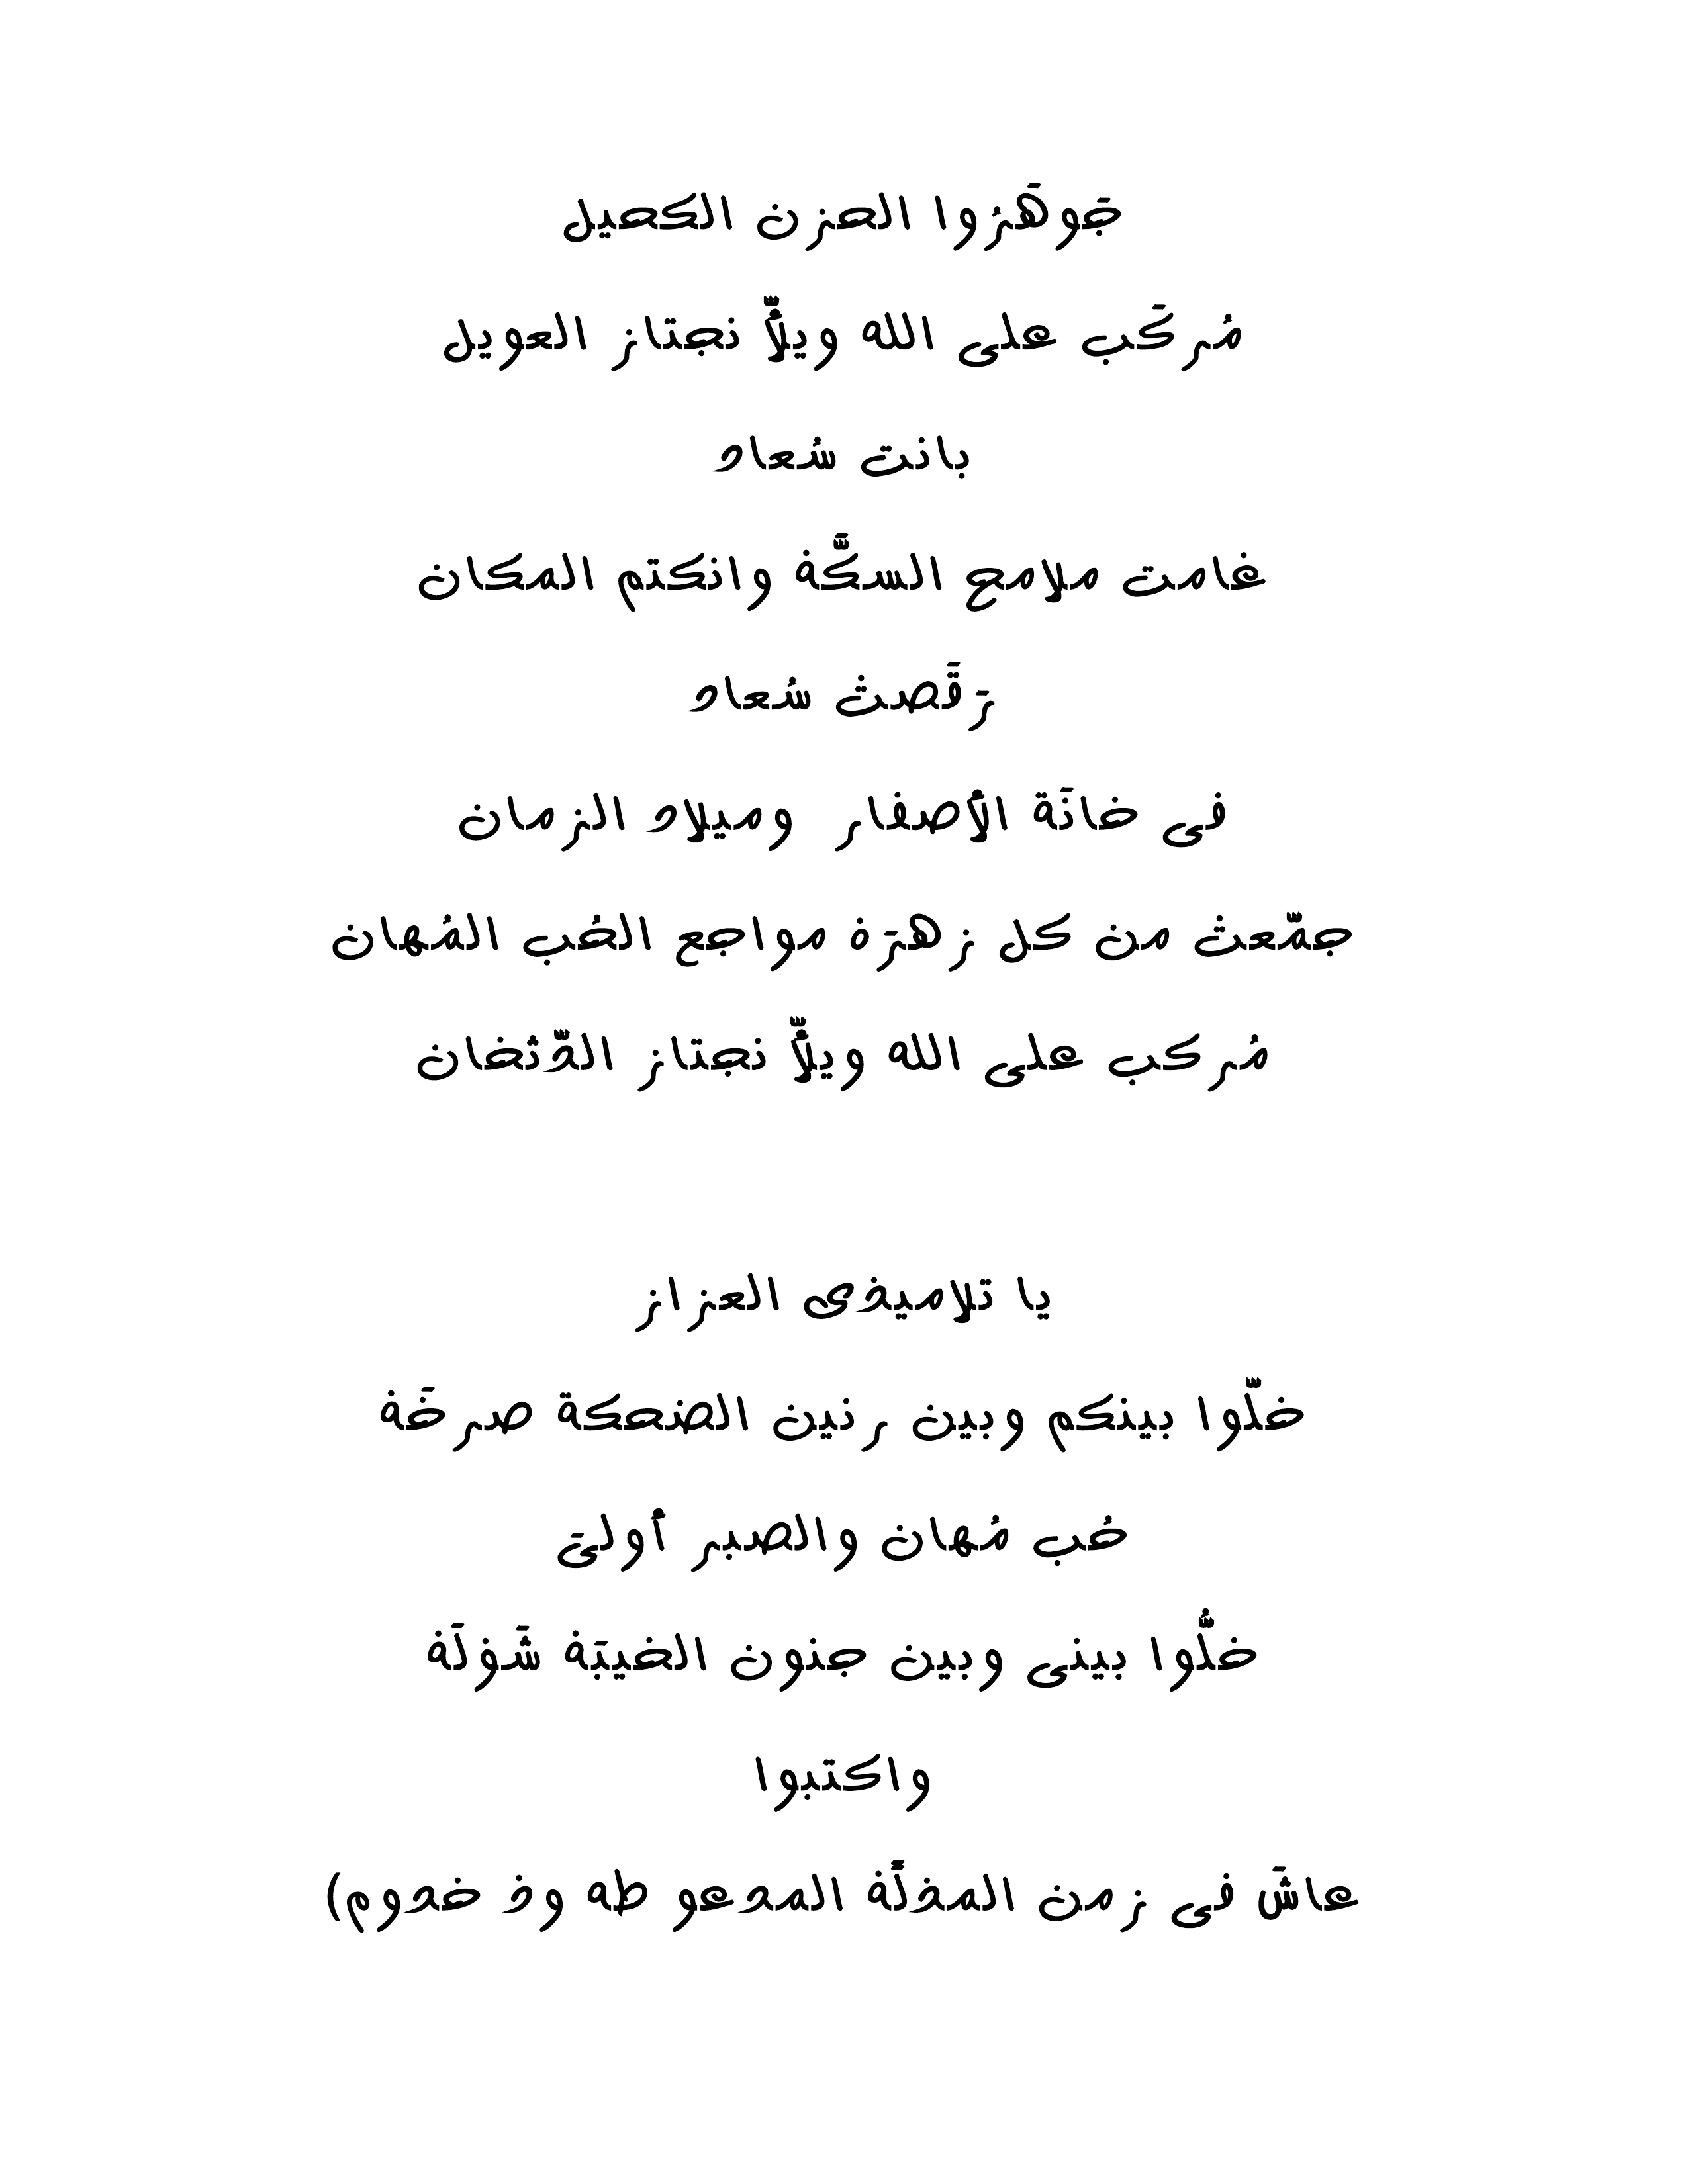 جَوهَرُوا الحزن الكحيل
مُركَب على الله ويلأَّ نجتاز العويل
بانت سُعاد
غامت ملامح السكَّة وانكتم المكان
رَقَصتْ سُعاد
فى خانَة الأصفار وميلاد الزمان
جمّعتْ من كل زهرَة مواجع الحُب المُهان
مُركب على الله ويلأَّ نجتاز الدّثخان
يا تلاميذى العزاز
خلّوا بينكم وبين رنين الضحكة صرخَة
حُب مُهان والصبر أولىَ
خلُّوا بينى وبين جنون الخيبَة شَوْلَة
واكتبوا
عاشَ فى زمن المذلَّة المدعو طه وذ خدوم)